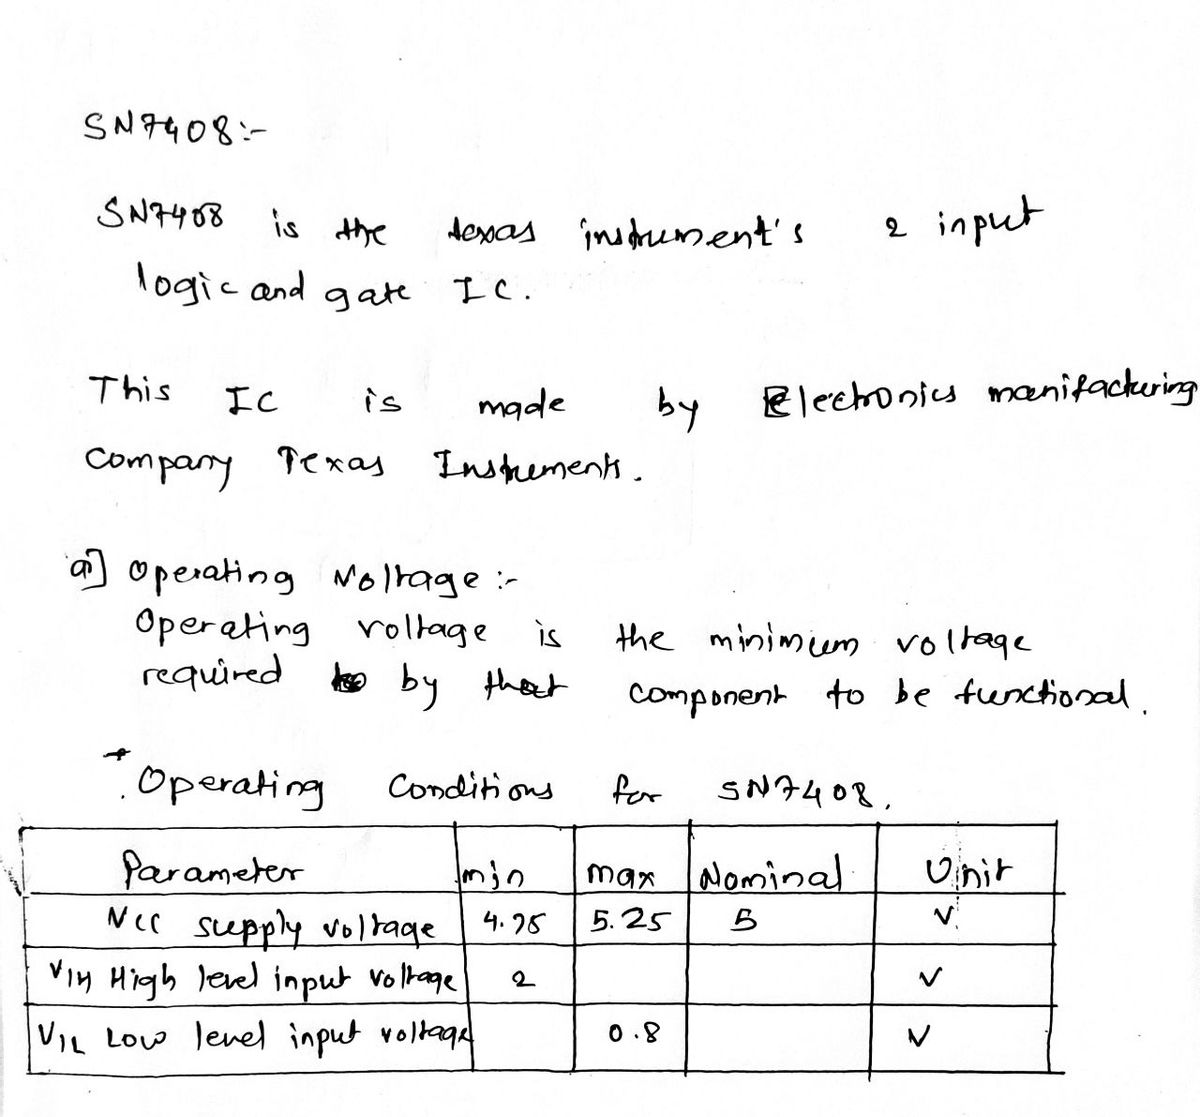 SN7408:-
SN7408 is the texas instrument's 2 input
logic and gate IC.
This IC is made by Electronics manifacturing
company Texas Instruments.
a] Operating Voltage :-
Operating voltage is the minimum voltage
required by that component to be functional.
Operating Conditions for SN7408.
Parameter min max Nominal Unit
VCC supply voltage 4.75 5.25 5 V
VIH High level input voltage 2 V
VIL Low level input voltage 0.8 V